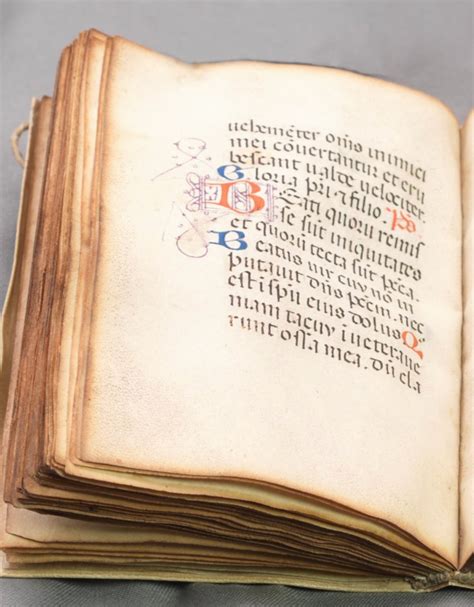 uehemēter om̄s inimici
mei cōuertantur et eru
bescant ualde uelociter.
Gloria pr̄i et filio. Ps
Beati quorū remis
se sūt iniquitates
et quorū tecta sūt pc̄ca.
Beatus uir cuy nō in
putauit dn̄s pc̄cm. nec
est ī spū eius dolus Q
niam tacuy īueterāue
runt ossa mea. dū cla